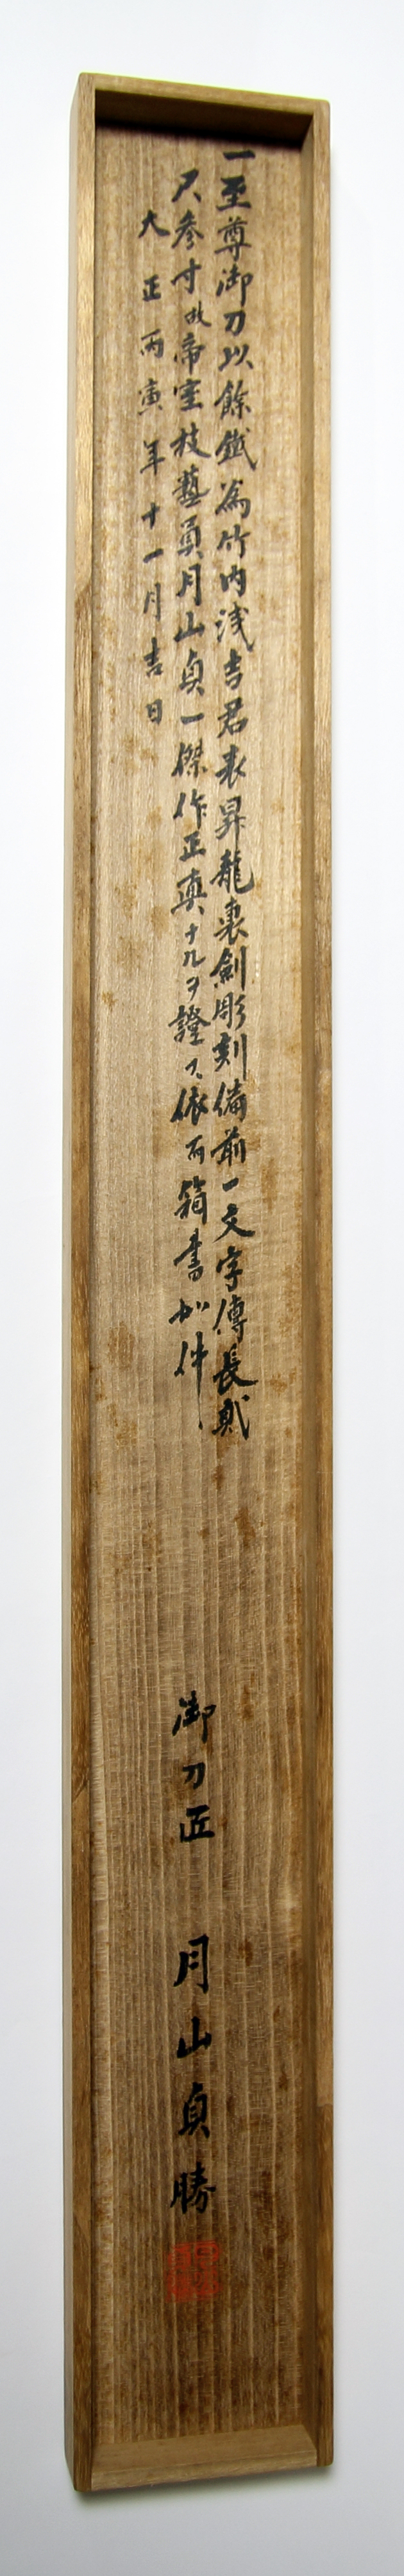 一至尊御刀以餘鐵為竹内浅吉君表昇龍裏劍彫刻備前一文字傳長貳
尺参寸故帝室技藝員月山貞一傑作正真ナルヲ證ス依而箱書如件
大正丙寅年十一月吉日
御刀匠 月山貞勝